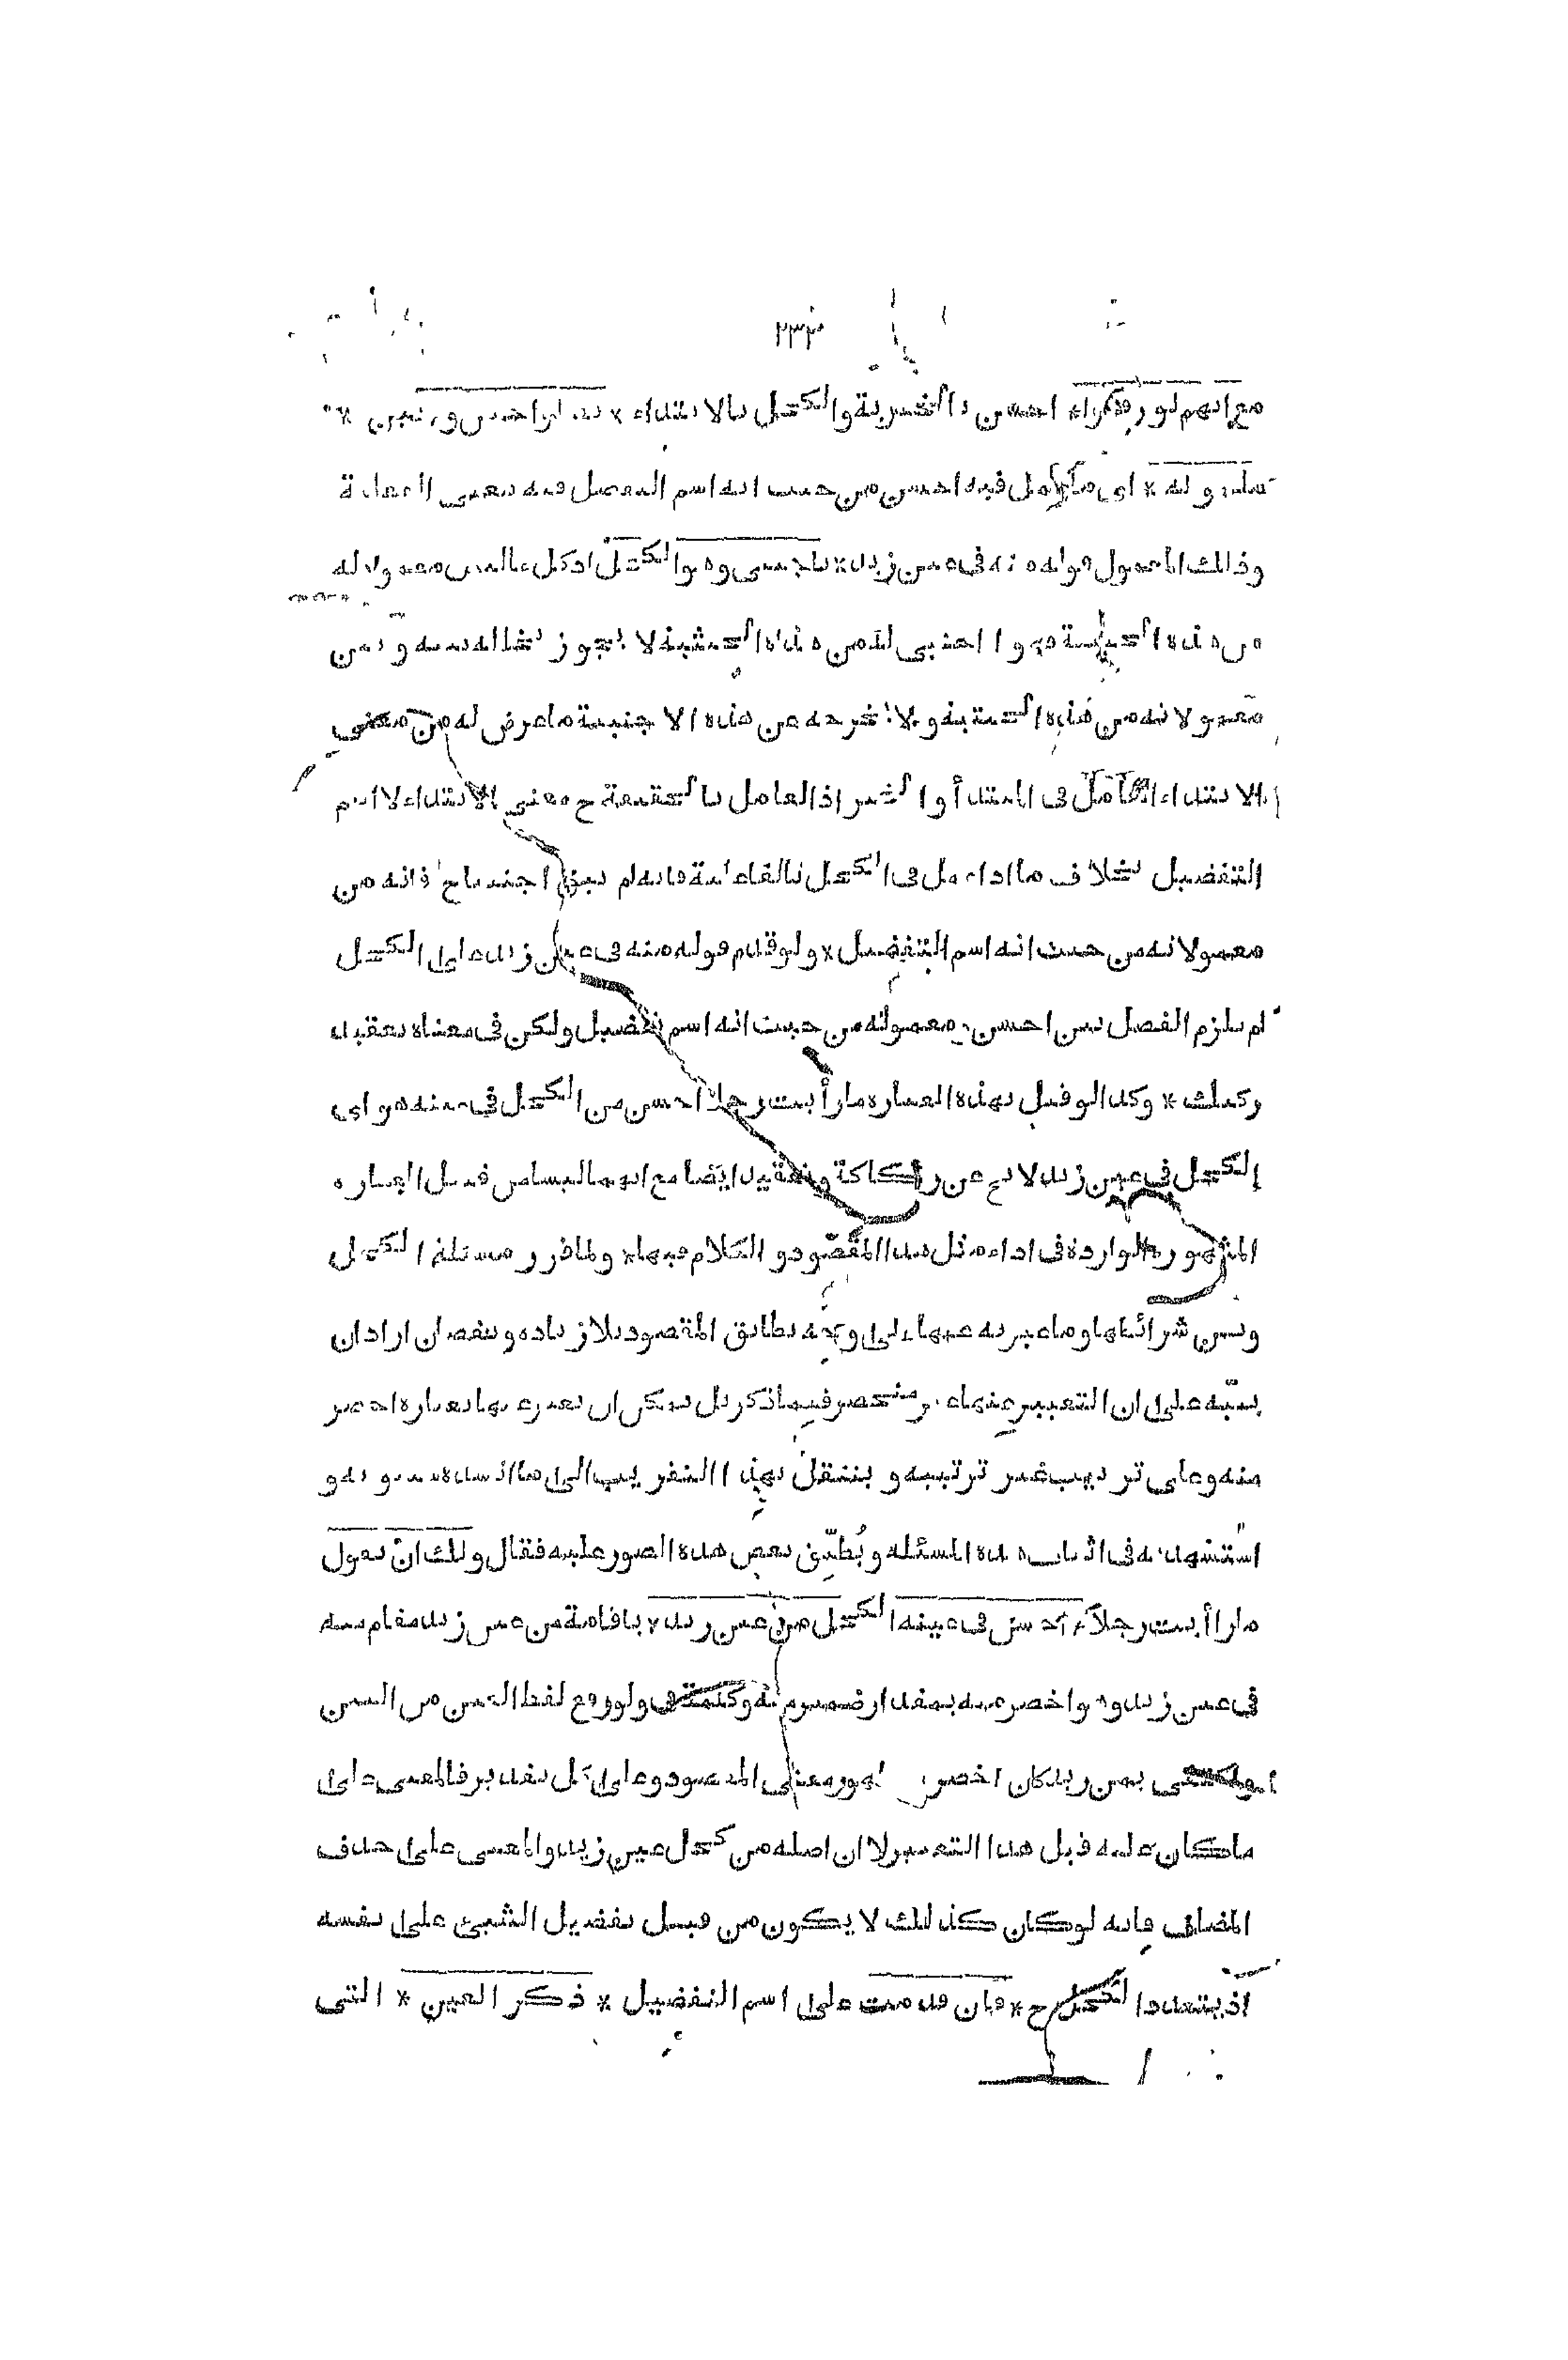 ٢٣٣
مع انهم لو رفعوا * احسن بالخبرية والكحل بالابتداء * فصلوا بين احسن وبين *
معموله * اى ما عمل فيه احسن من حيث انه اسم التفضيل فيه معنى
وذلك المعمول قوله منه فى عين زيد * باجنبى وهو الكحل اذ كل ما ليس معمولا له
من هذه الحيثية فهو اجنبى له من هذه الحيثية لا يجوز تخلله بينه وبين
معموله من هذه الحيثية ولا يخرجه عن هذه الاجنبية ما عرض له من معنى
الابتداء العامل فى المبتدأ والخبر اذ العامل بالحقيقة ح معنى الابتداء لا اسم
التفضيل بخلاف ما اذا عمل فى الكحل بالفاعلية فانه لم يبق اجنبيا ح فانه من
معمولاته من حيث انه اسم التفضيل * ولو قدم قوله منه فى عين زيد على الكحل
لم يلزم الفصل بين احسن ومعموله من حيث انه اسم تفضيل ولكن فى معناه تعقيد
ركيك * وكذا لو قيل بهذه العبارة ما رأيت رجلا احسن من الكحل فى عينه هو اى
الكحل فى عين زيد لا يخ عن ركاكة وتعقيد ايضا مع انهما ليسا من قبيل العبارة
المشهورة الواردة فى اداء مثل هذا المقصود والكلام فيها * ولما قرر مسئلة الكحل
وبين شرائطها وما عبر به عنها على وجه يطابق المقصود بلا زيادة ونقصان اراد ان
ينبّه على ان التعبير عنها غير منحصر فيما ذكر بل يمكن ان يعبر عنها بعبارة اخصر
منه وعلى ترتيب غير ترتيبه وينتقل بهذا التقريب الى ما انشده سيبويه و
استشهد به فى اثبات هذه المسئلة ويُطبّق بعض هذه الصور عليه فقال ولك ان تقول
ما رأيت رجلا * احسن فى عينه الكحل من عين زيد * باقامة من عين زيد مقام منه
فى عين زيد وهو اخصر منه بمقدار ضمير منه وكلمة فى ولو رفع لفظ العين من البين
واكتفى بمن زيد كان اخصر ظهور معنى المقصود وعلى كل تقدير فالمعنى على
ما كان عليه قبل هذا التعبير لان اصله من كحل عين زيد والمعنى على حذف
المضاف فانه لو كان كذلك لا يكون من قبيل تفضيل الشيئ على نفسه
اذ يتعدد الكحل ح * فان قدمت على اسم التفضيل * ذكر العين * التى